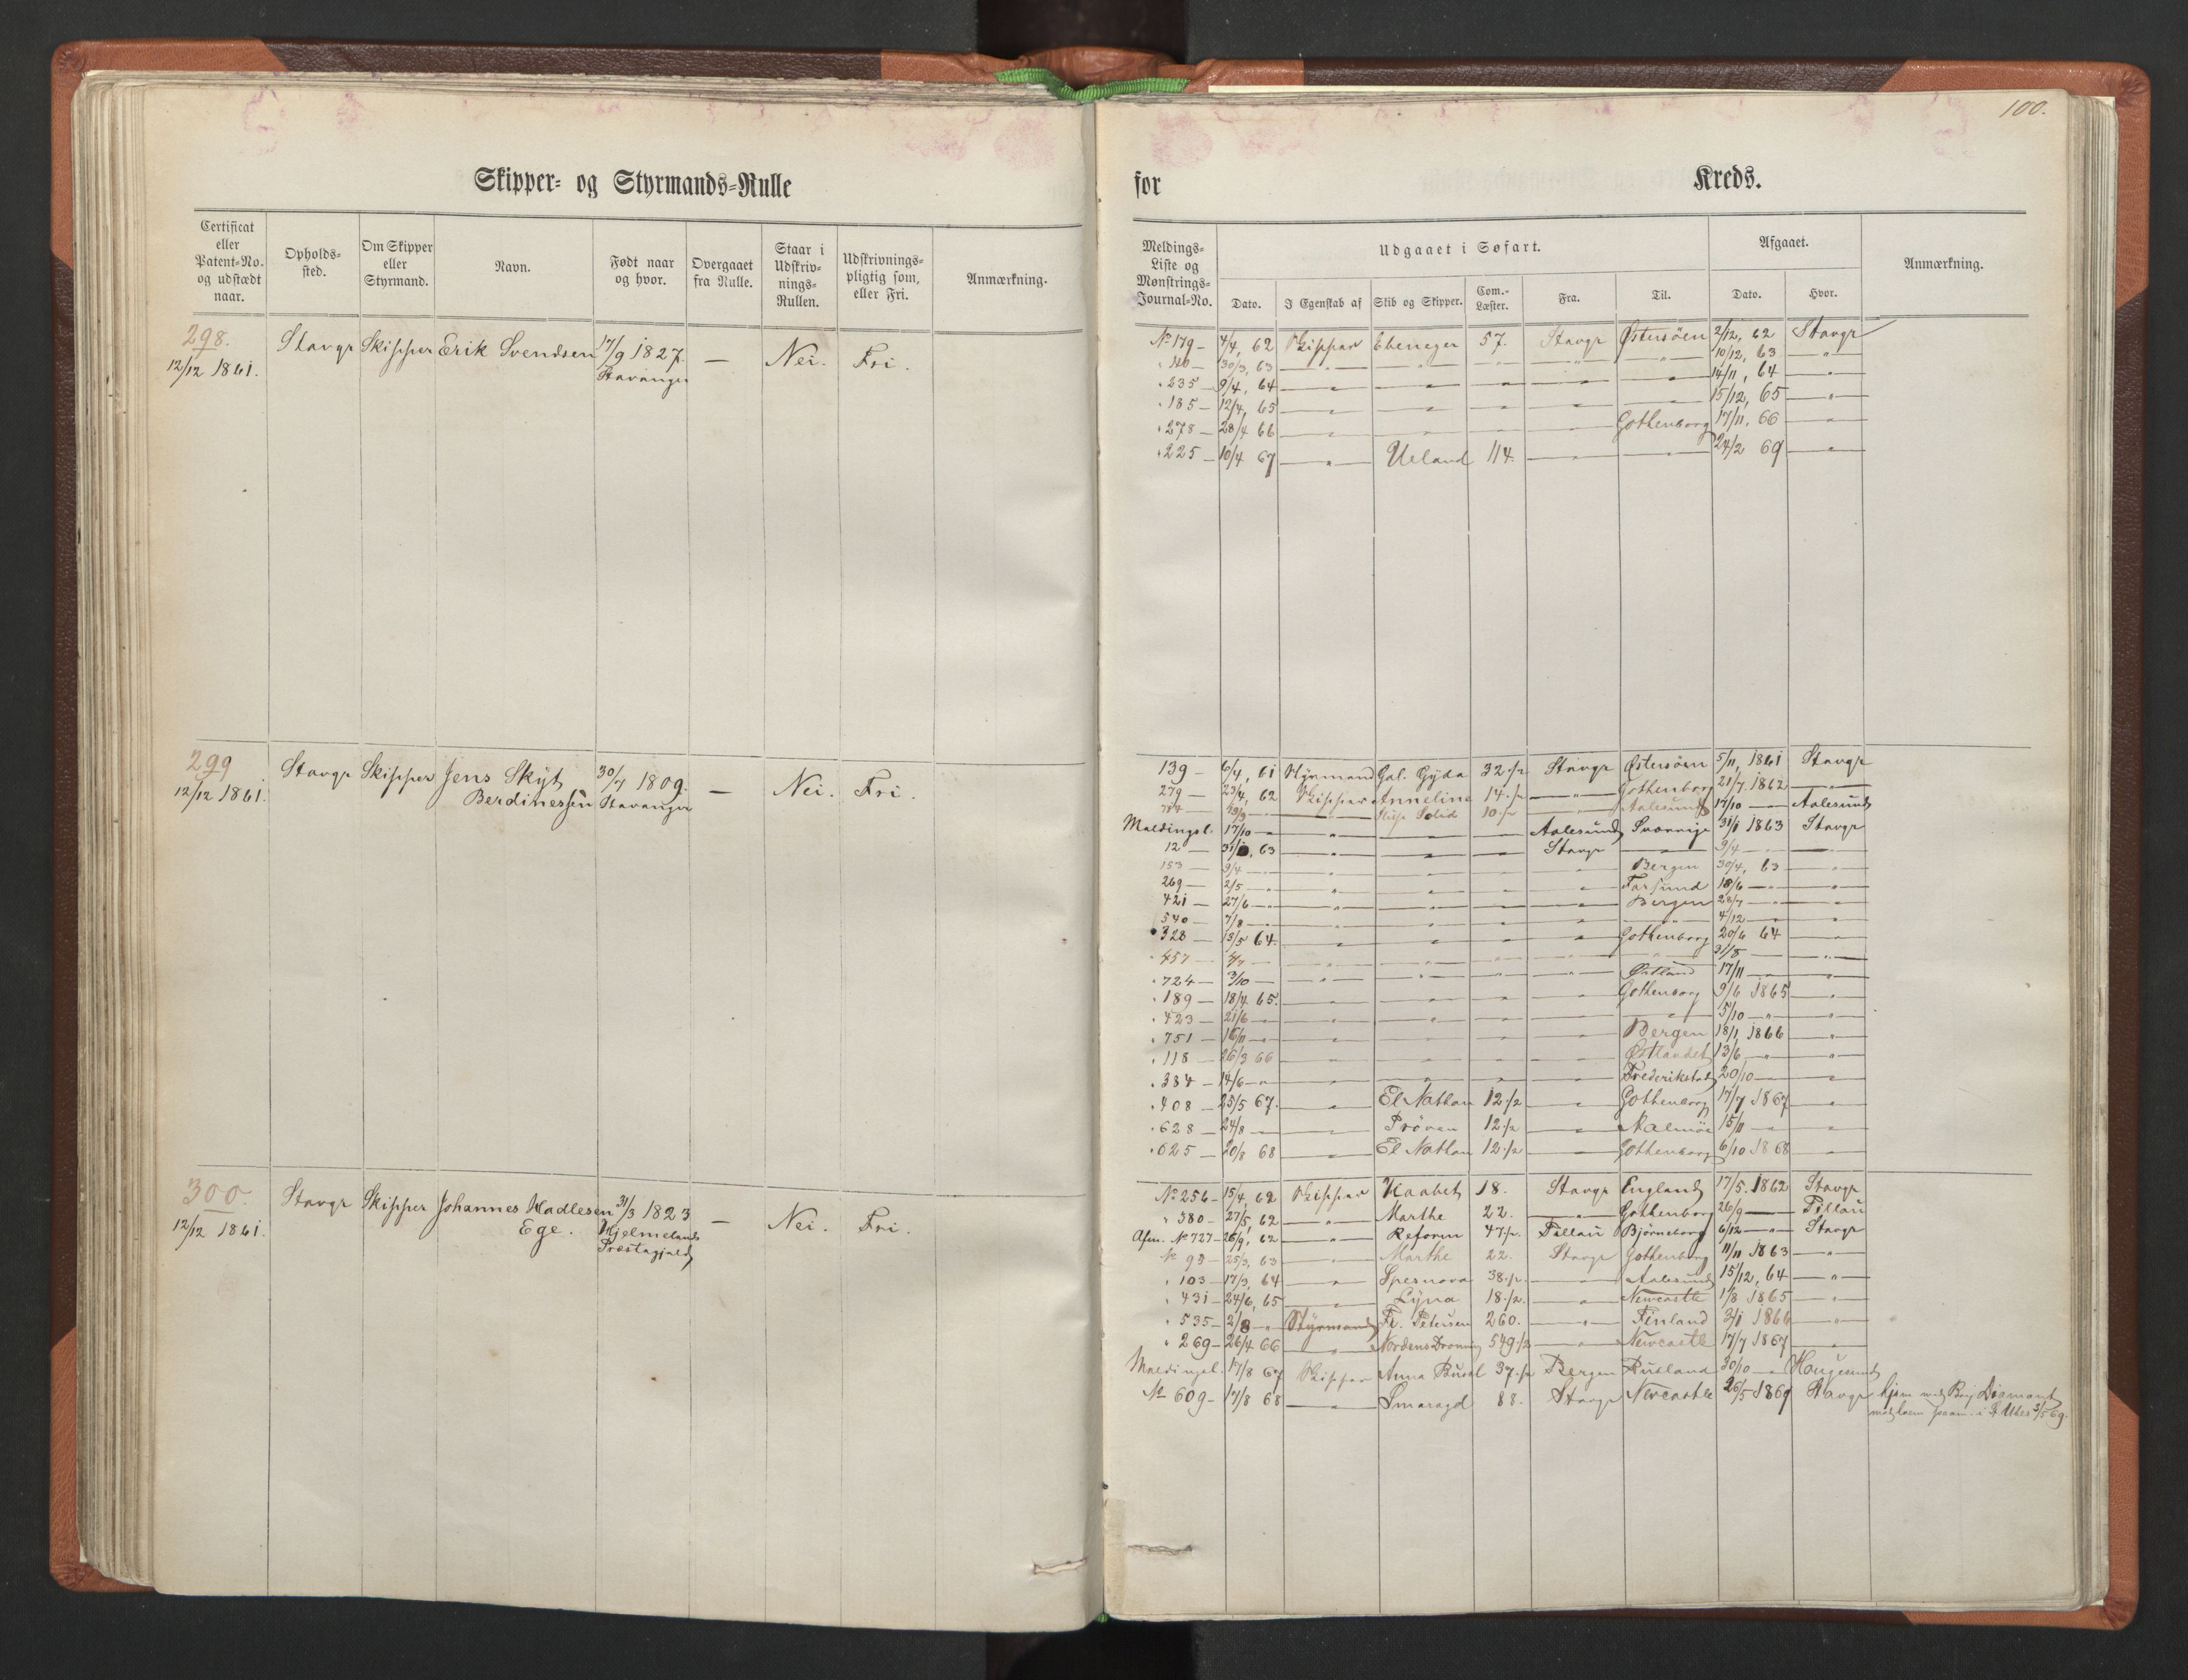 100.
Skipper- og Styrmands-Rulle
for Kreds.
Certificat eller Patent-No. og udstædt naar.
Opholds-sted.
Om Skipper eller Styrmand.
Navn.
Født naar og hvor.
Overgaaet fra Rulle.
Staar i Udskriv-nings-Rullen.
Udskrivnings-pligtig som, eller Fri.
Anmærkning.
Meldings-Liste og Mønstrings-Journal-No.
Udgaaet i Søfart.
Dato.
I Egenskab af
Skib og Skipper.
Com.-Læster.
Fra.
Til.
Afgaaet.
Dato.
Hvor.
Anmærkning.
298.
12/12 1861.
Stavgr Skipper Erik Svendsen 17/9 1827. Stavanger — Nei. Fri.
No 179 – 4/4, 62 Skipper Ebenezer 57. Stavgr Østersöen 2/12, 62 Stavgr
30/3, 63 — " — — " — — " — — " — 10/12, 63 — " —
" 235 – 9/4, 64 — " — — " — — " — — " — — " — 14/11, 64 — " —
" 185 – 12/4, 65 — " — — " — — " — — " — — " — 15/12, 65 — " —
" 278 – 28/4 66 — " — — " — — " — — " — Gothenborg 17/11, 66 — " —
" 225 – 10/4 67 — " — Ueland 114. — " — — " — 24/2 69 — " —
299
12/12 1861.
Stavgr Skipper Jens Skÿt Berdinessen 30/7 1809. Stavanger — Nei. Fri.
139 – 6/4, 61 Styrmand Gal. Gÿda 32 1/2 Stavgr Østersöen 5/11, 1861 Stavgr
279 – 23/4, 62 Skipper Anneline 14 1/2 — " — Gothenborg 21/7 1862 — " —
— " — Solid 10 1/2 — " — Aalesund 17/10 — Aalesund
Meldingsl. 17/10 – " — " — — " — — " — Aalesund Sverrige 31/1 1863 Stavgr
12 — 31/1, 63 — " — — " — — " — Stavgr — " — 9/4 — — " —
153 9/4 — " — " — — " — — " — — " — Bergen 30/4, 63 — " —
269 — 2/5 — " — " — — " — — " — — " — Farsund 18/6 — " — — " —
421 — 27/6 — " — " — — " — — " — — " — Bergen 28/7 — " — — " —
540 — 7/8 — " — " — — " — — " — — " — — " — 4/12 — " — — " —
328 — 13/5 64. — " — — " — — " — — " — Gothenborg 20/6 64 — " —
457 — 4/7 — — " — — " — — " — — " — — " — 31/8 — — " —
" 724 — 3/10 — — " — — " — — " — — " — Østland 17/11 — " — — " —
" 189 — 18/4 65. — " — — " — — " — — " — Gothenborg 9/6 1865 — " —
" 423 — 21/6 — — " — — " — — " — — " — — " — 5/10 — " — — " —
" 751 — 16/11 — " — " — — " — — " — — " — Bergen 18/1, 1866 — " —
" 118 — 26/3 66 — " — — " — — " — — " — Østlandet 13/6 — " — — " —
" 384 — 14/6 — " — " — — " — — " — — " — Frederikstad 20/10 — — " —
" 408 — 25/5 67. — " — El Nathan 12 1/2 — " — Gothenborg 17/7 1867 — " —
" 628 — 24/8 — — " — Pröven 12 1/2 — " — Malmöe 15/11 — " — — " —
" 625 — 20/8 68 — " — El Nathan 12 1/2 — " — Gothenborg 6/10 1868 — " —
300.
12/12 1861.
Stavgr Skipper Johannes Hadlesen Ege. 31/3 1823 Hjelmelands Præstegjeld — Nei. Fri.
No 256 – 15/4, 62 Skipper Haabet 18. Stavgr England 17/5. 1862 Stavgr
" 380 – 27/5, 62 — " — Marthe 22. — " — Gothenborg 26/9 — Pillau
Afm. No 727 – 26/9, 62 — " — Reform 47 1/2 Pillau Björneborg 6/12 — " — Stavgr
No 93 – 25/3, 63 — " — Marthe 22. Stavgr Gothenborg 11/11 1863 — " —
" 103 – 17/3, 64 — " — Spesnova 38 1/2 — " — Aalesund 15/12, 64 — " —
" 431 – 24/6, 65 — " — Lÿna 18 1/2. — " — Newcastle 1/8 1865 — " —
" 535 – 2/8 — " Styrmand Fr. Petersen 260. — " — Finland 3/1 1866 — " —
" 269 – 26/4 66 — " — Nordens Dronning 549 1/2 — " — Newcastle 17/7 1867 — " —
Meldingsl. 17/8 67 Skipper Anna 37 1/2 Bergen Rusland 30/10 — " — Haugesund
No 609 – 17/8 68 — " — Smaragd 88. Stavgr Newcastle 26/5 1869 Stavgr hjem med Brig Diamant
i St Ubes 3/5 69.